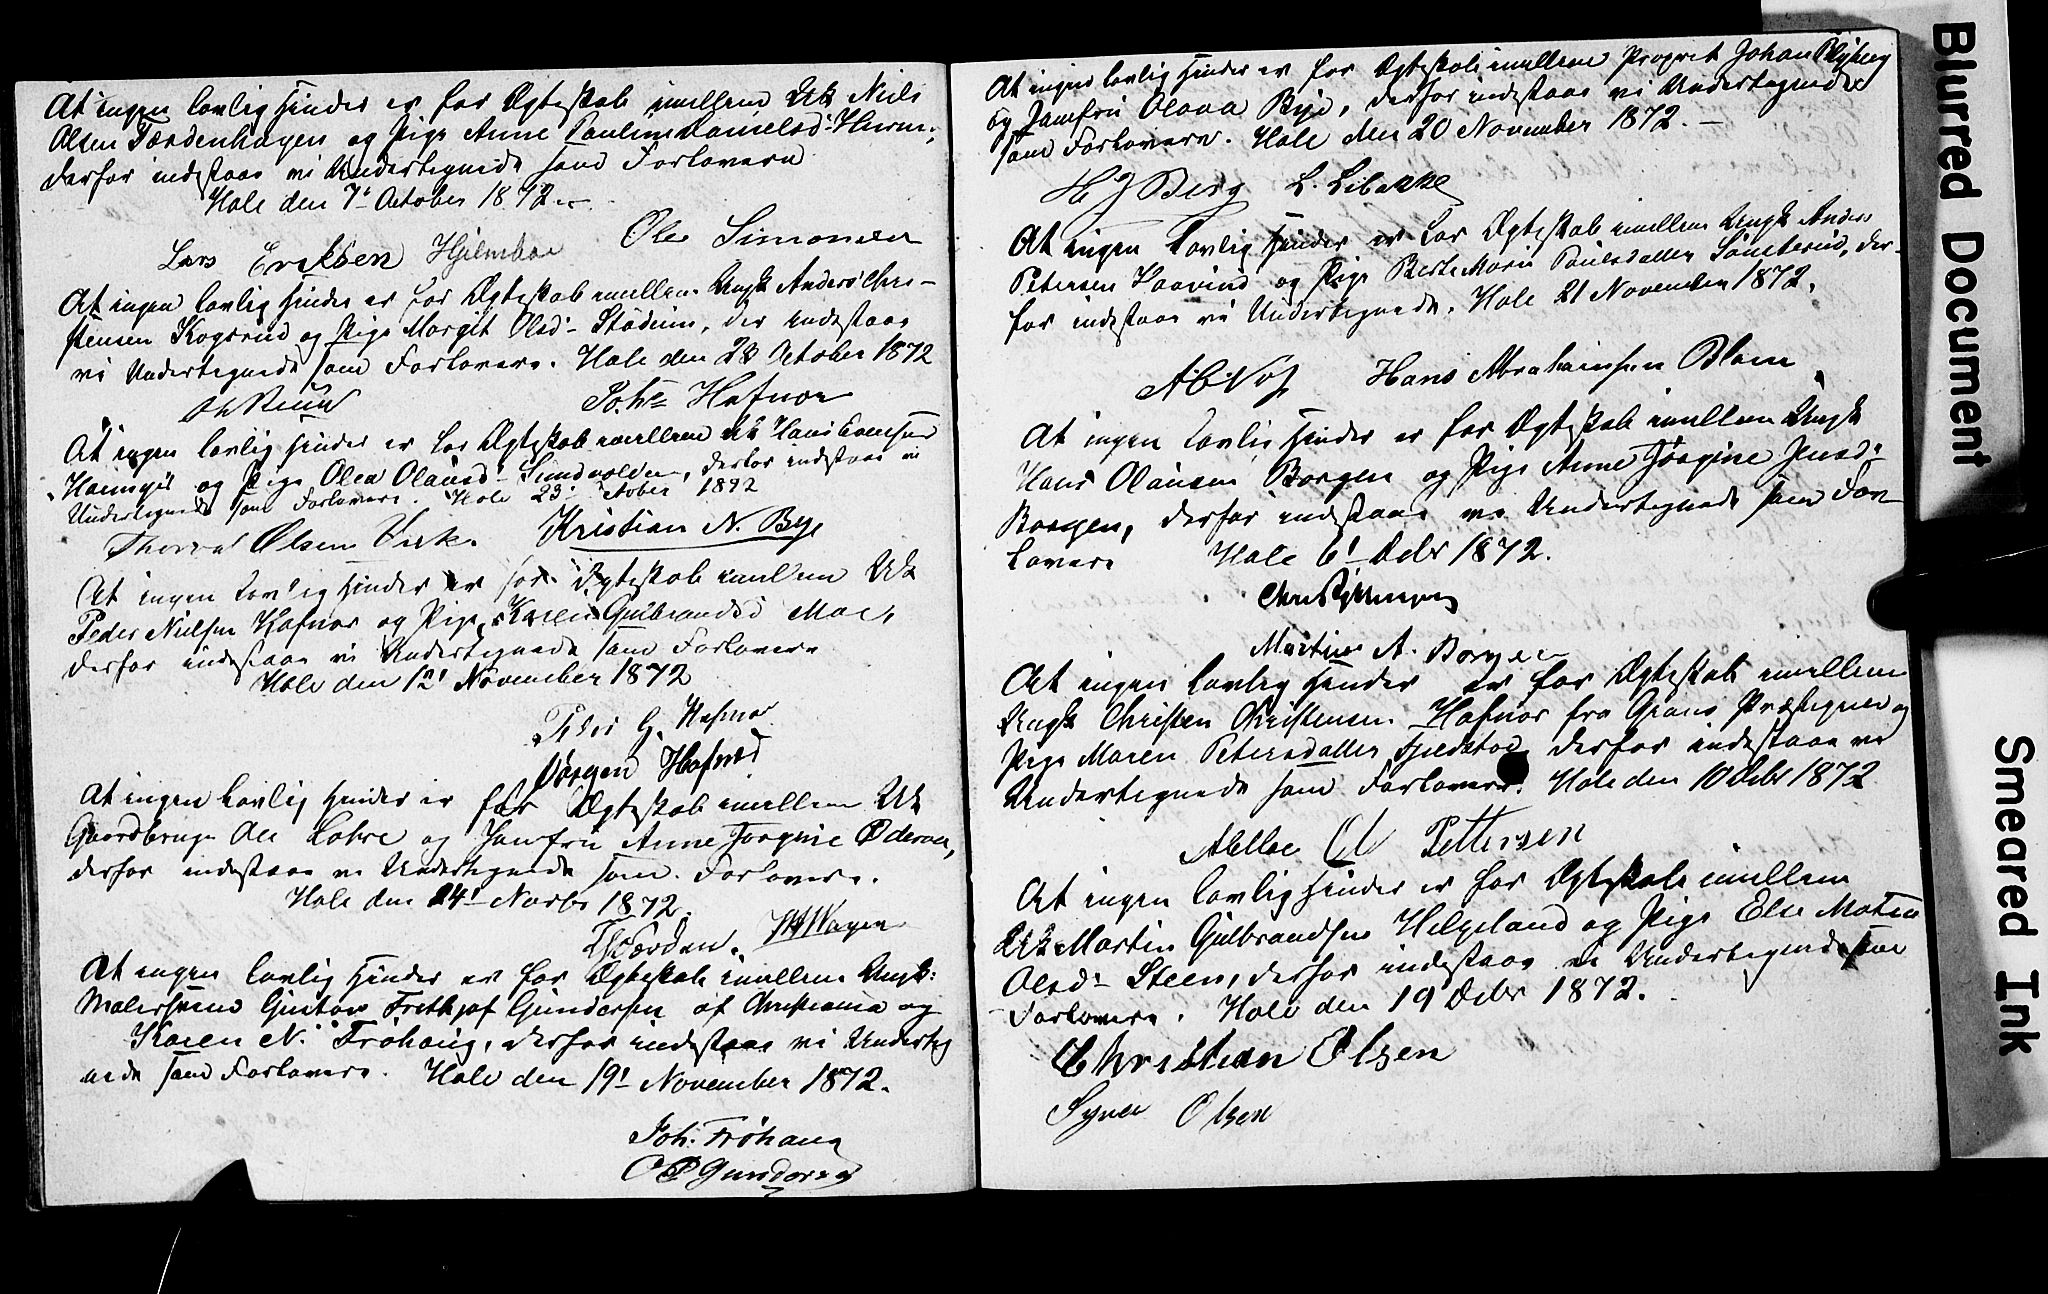 At ingen lovlig Hinder er for Ægteskab imellem Uk Niels
Olsen Færdenhagen og Pige Anne Pauline Danielsd:
derfor indestaae vi Undertegnede som Forlovere
Hole den 7' October 1872.
Ole Simonsen
Lars Eriksen Hjelmboe
At ingen lovlig Hinder er for Ægteskab imellem Ungk Anders Chri-
stensen Kogsrud og Pige Margit Olsd:, der indestaae
vi Undertegnede som Forlovere. Hole den 23 October 1872
Johs Hafnor
At ingen lovlig Hinder er for Ægteskab imellem Uk Hans Evensen
og Pige Olea Olausd: Sundvolden, derfor indestaae vi
Undertegnede som Forlovere. Hole 23' October 1872
Olsen Kristian N. Bye
At ingen lovlig Hinder er for Ægteskab imellem Uk
Peder Nielsen Hafnor og Pige Karen Gulbrandsd Moe,
derfor indestaae vi Undertegnede som Forlovere
Hole den 12' November 1872
Peder G. Hafnor
Jørgen Hafnor
At ingen lovlig Hinder er for Ægteskab imellem Uk
Gaardbruger Ole Lohre og Jomfru Anne Jørgine
derfor indestaae vi Undertegnede som Forlovere.
Hole den 14' Novbr 1872.
At ingen lovlig Hinder er for Ægteskab imellem Ungk:
Malersvend Gustav Frithjof Gundersen af Christiania og
Karen N. Frøhaug, derfor indestaae vi Underteg
nede som Forlovere. Hole den 19' November 1872.
Joh. Frøhaug
O P Gundersen
At ingen lovlig Hinder er for Ægteskab imellem Propret Johan Blyberg
og Jomfru Olava Bye, derfor indestaae vi Undertegnede
som Forlovere. Hole den 20 November 1872.
H J Berg L. Libakke
At ingen lovlig Hinder er for Ægteskab imellem Ungk Anders
Petersen og Pige Berte Marie Paulsdatter Sønsterud, der-
for indestaae vi Undertegnede. Hole 21 November 1872.
Hans Abrahamsen Blom
At ingen lovlig Hinder er for Ægteskab imellem Ungk
Hans Olausen Borgen og Pige Anne Jørgine Jensd:
Borgen, derfor indestaae vi Undertegnede som For
lovere Hole 6' Decbr 1872.
Martin A. Borgen
At ingen lovlig Hinder er for Ægteskab imellem
Ungk Christen Christensen Hafnor fra Grans Præstegjeld og
Pige Maren Petersdatter derfor indestaae vi
Undertegnede som Forlovere. Hole den 10 Decbr 1872
Pettersen
At ingen lovlig Hinder er for Ægteskab imellem
Uk Martin Gulbrandsen Helgeland og Pige Else Matea
Olsd: Steen, derfor indestaae vi Undertegnede som
Forlovere. Hole den 19 Decbr 1872.
Christian Olsen
Syver Olsen
Blurred Document
Smeared Ink